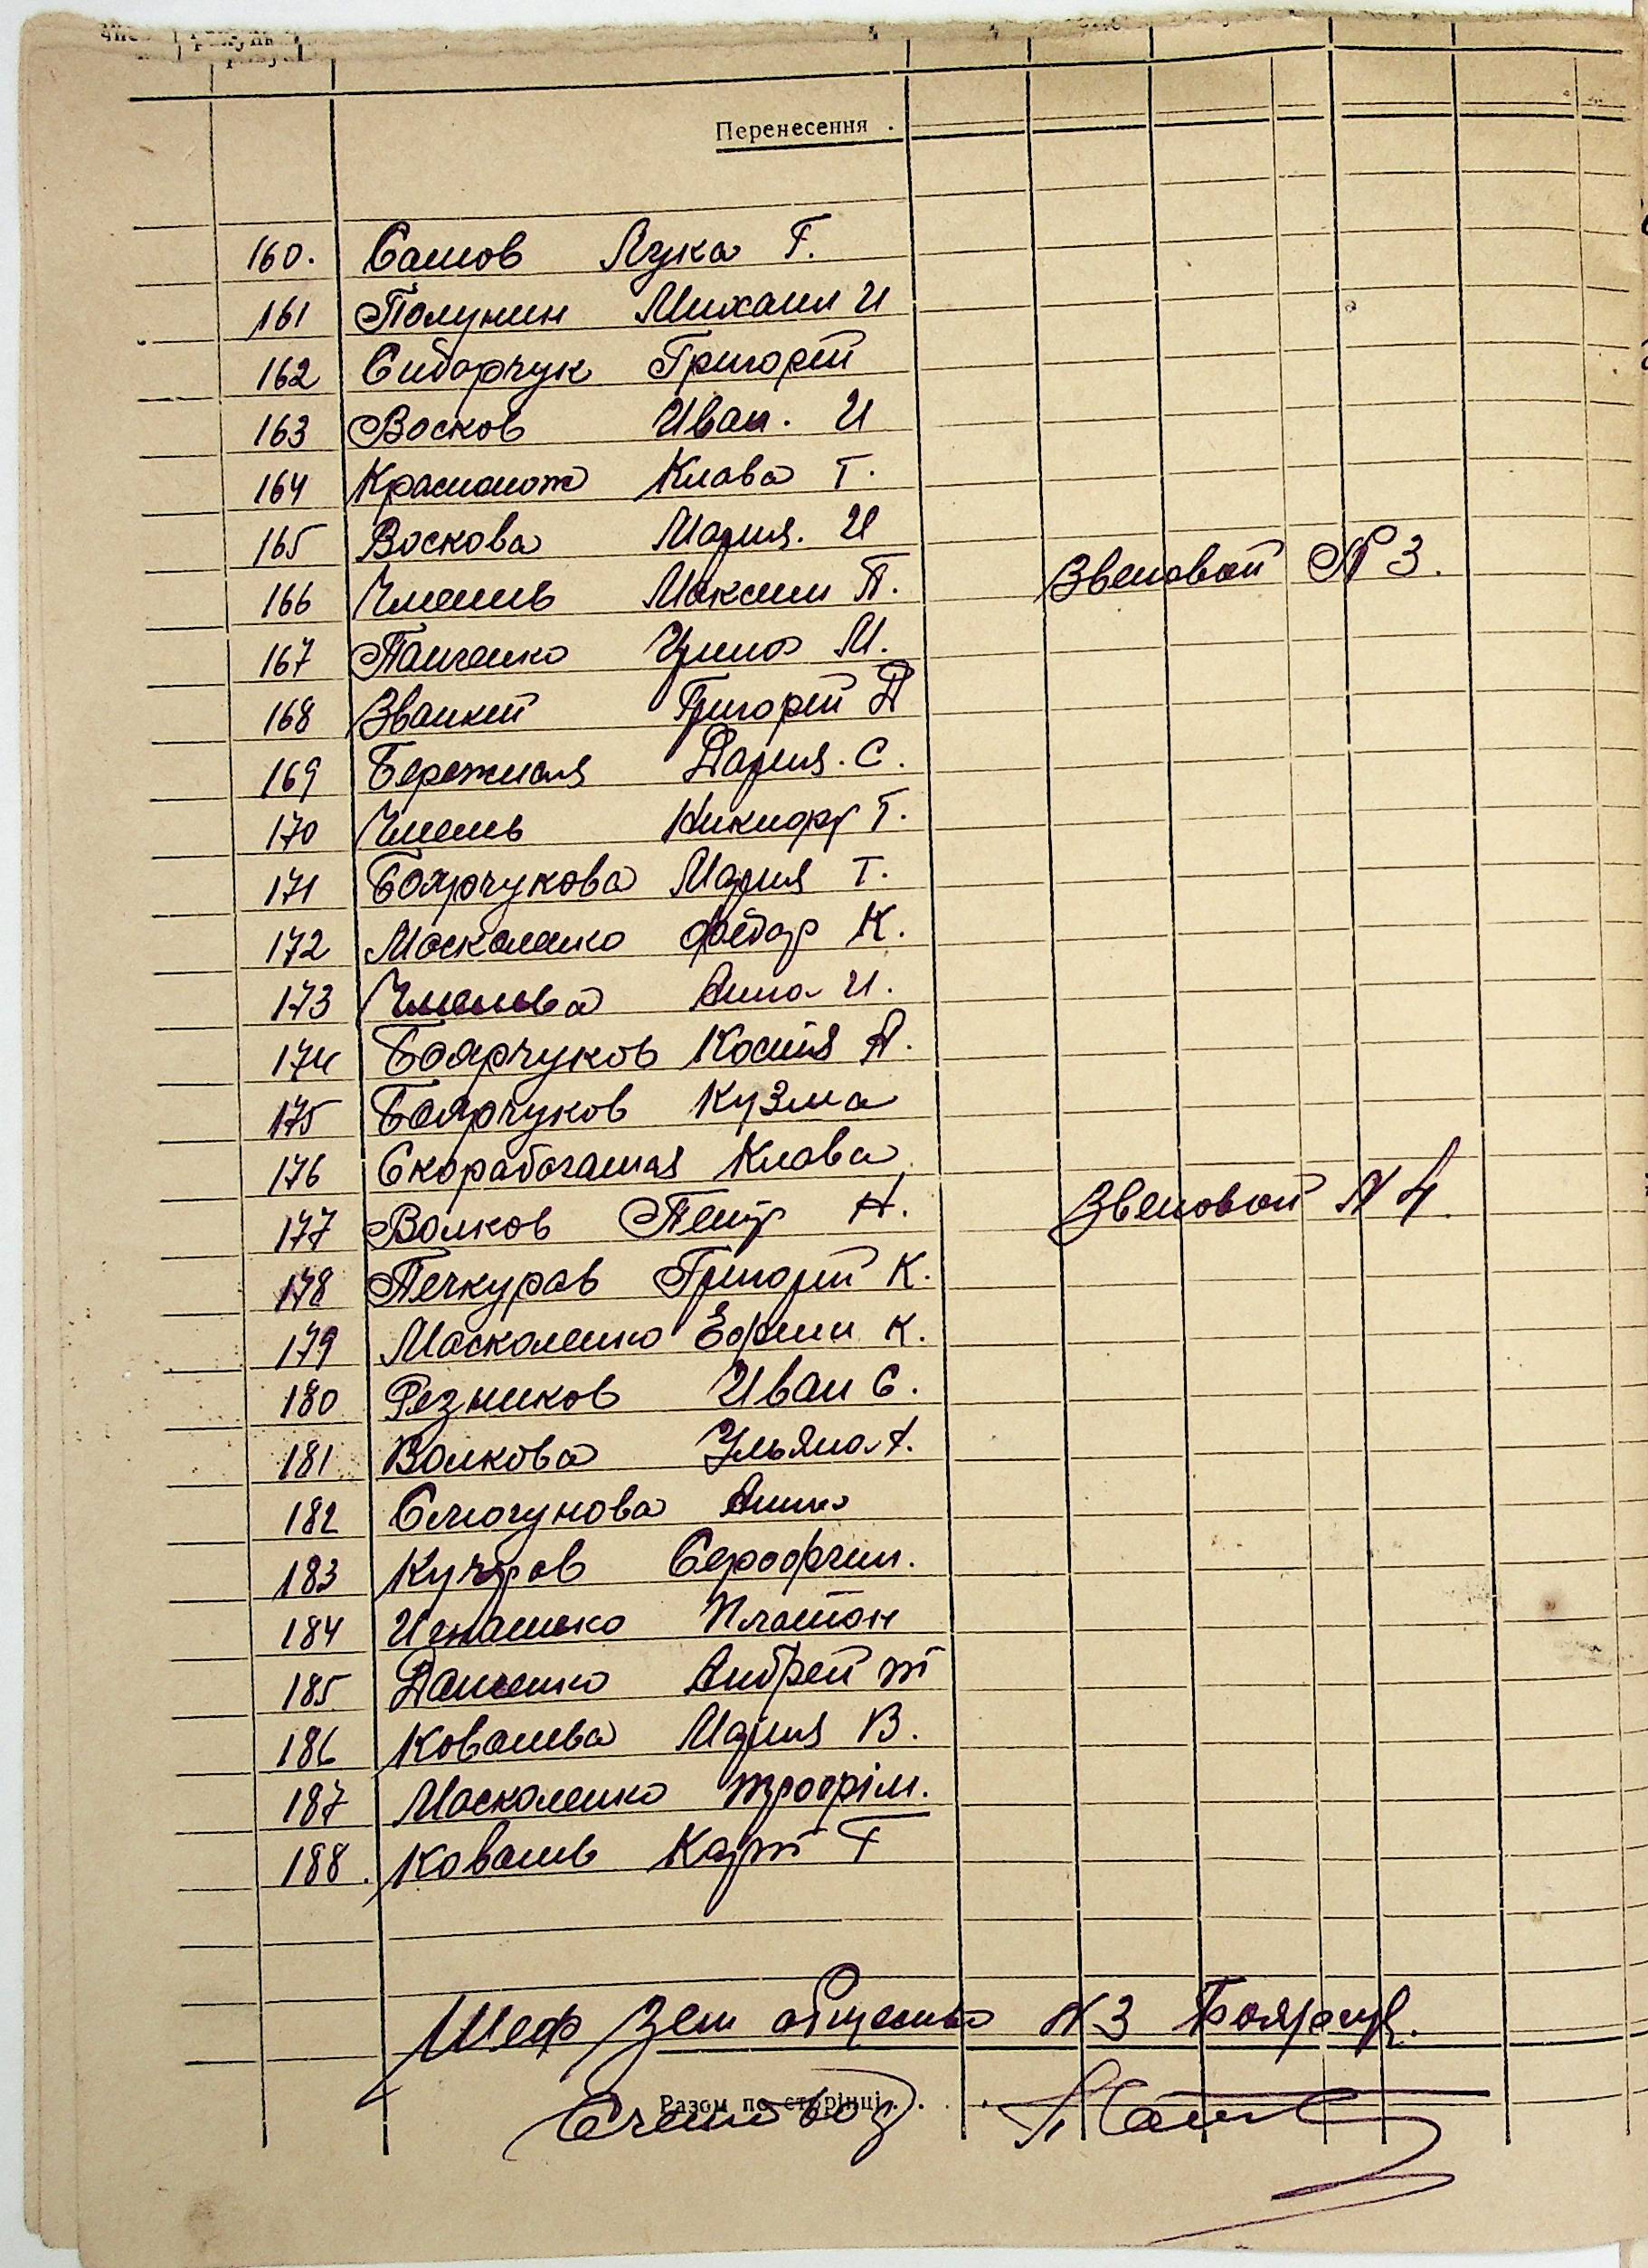 Перенесення .
160. Сашов Лука Г.
161 Полунин Михаил И
162 Сидорчук Григорей
163 Восков Иван. И
164 Краснонож Клава Г.
165 Воскова Мария. И
166 Чмень Максим П. Звеновой N 3.
167 Панченко Ирина М.
168 Званкей Григорей Д
169 Бережная Дария. С.
170 Чмень Никифор Г.
171 Боярчукова Мария Т.
172 Москаленко Федор К.
173 Анна И.
174 Боярчуков Костя А.
175 Боярчуков Кузма
176 Скорабогатая Клава
177 Волков Петр Н. Звеновой N 4.
178 Печкуров Григорий К.
179 Москаленко Ефим К.
180 Резников Иван С.
181 Волкова Ульяна А.
182 Анна
183 Кучеров Серофим.
184 Игнатенко Платон
185 Данченко Андрей т
186 Ковалева Мария В.
187 Москаленко трофім.
188. Коваль Карп Г
Шеф Зем общества N 3 Боярчук.
Разом по сторінці . .
Счетовод